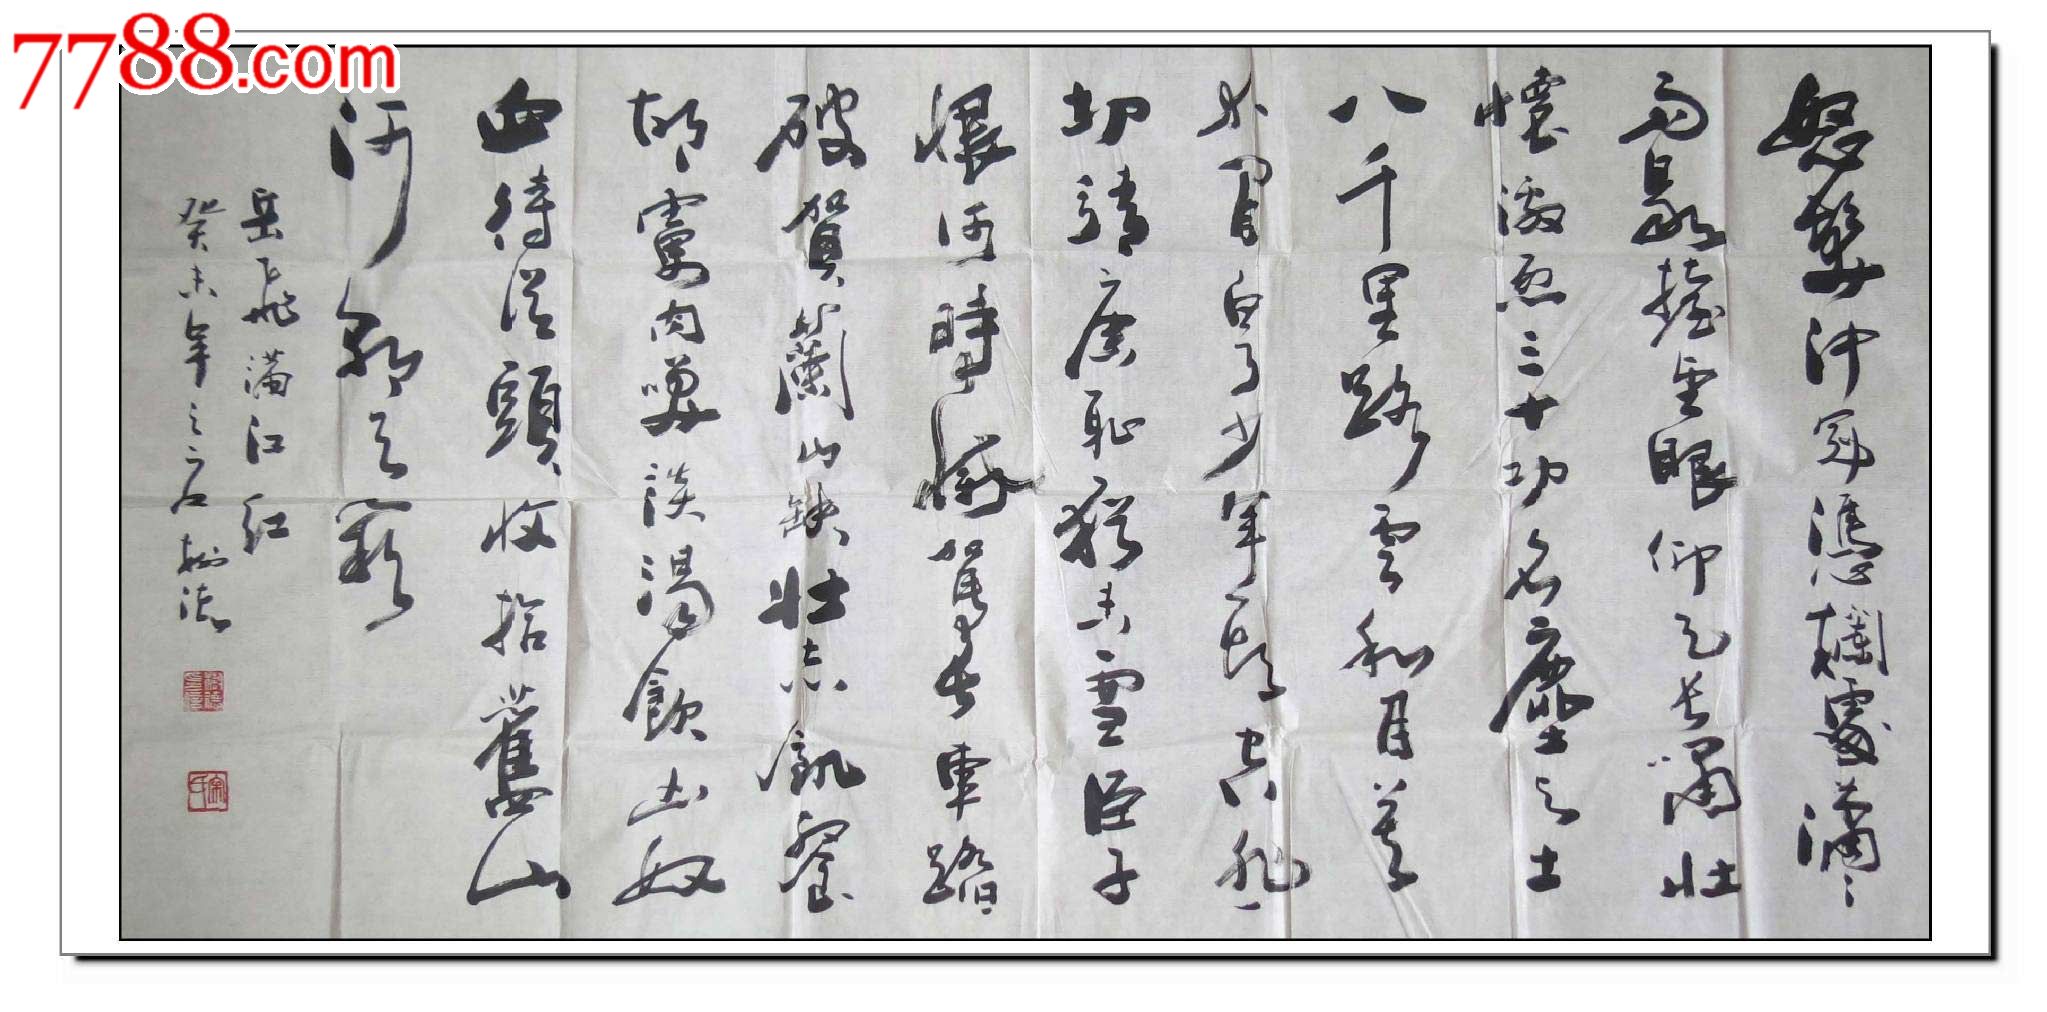 7788.com
怒髮沖冠憑欄處瀟〻
雨歇擡望眼仰天長嘯壯
懷激烈三十功名塵与土
八千里路雲和月莫
等閒白了少年頭空悲
切靖康恥猶未雪臣子
恨何時滅駕長車踏
破賀蘭山缺壯志飢餐
胡虜肉笑談渴飲匈奴
血待從頭收拾舊山
河朝天闕
岳飛滿江紅
癸未年之